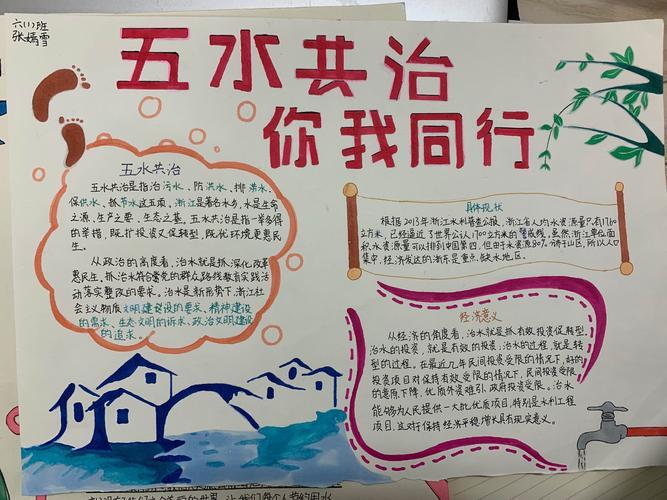 六(1)班
张嫣雪
五水共治
你我同行
五水共治
五水共治是指治污水、防洪水、排涝水、
保供水、抓节水这五项,浙江是著名水乡,水是生命
之源,生产之要,生态之基。五水共治是指一举多得
的举措,既扩投资又促转型,既优环境更惠民
生。
从政治的高度看,治水就是抓深化改革
惠民生。抓治水符合党的群众路线教育实践活
动落实整改的要求。治水是新形势下,浙江社
会主义物质文明建设的要求、精神建设
的需求、生态文明的诉求、政治文明建设
的追求。
具体现状
根据2013年浙江水利普查公报,浙江省人均水资源量只有1760
立方米,已经逼近了世界公认1700立方米的警戒线。虽然浙江单位面
积水资源量可以排到中国第四,但由于水资源80%分布于山区,所以人口
集中,经济发达的浙东是重点缺水地区。
经济意义
从经济的角度看,治水就是抓有效投资促转型,
治水的投资,就是有效的投资,治水的过程,就是转
型的过程。在最近几年民间投资受限的情况下,好的
投资项目对保持有效受限的情况下,民间投资受限
的意愿下降,优质外资难引,政府投资受限。治水
能够为人民提供一大批优质项目,特别是水利工程
项目,这对于保持经济平稳增长具有现实意义。